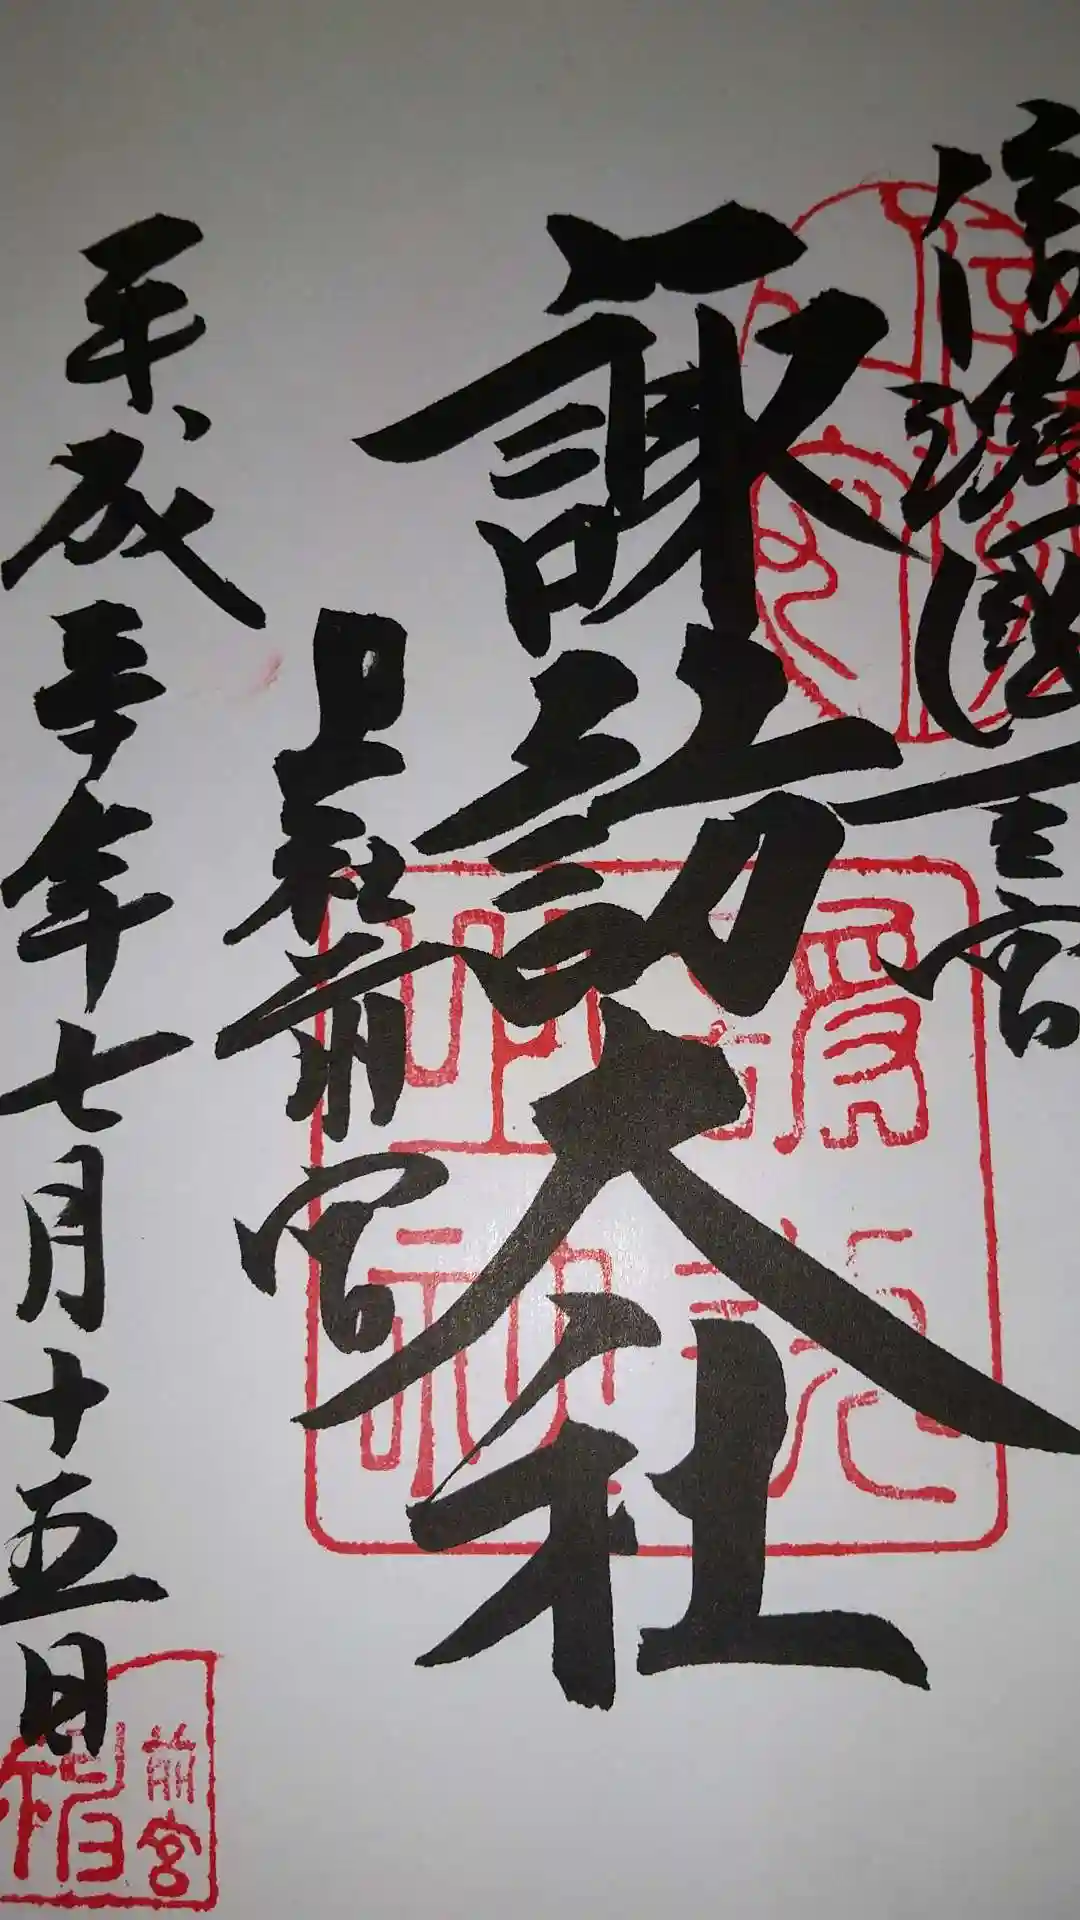 信濃國一之宮
諏訪大社
上社前宮
平成三十年七月十五日
前宮